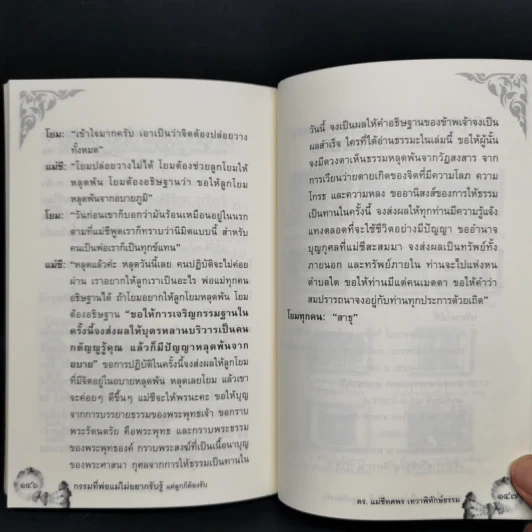 โยม: "เข้าใจมากครับ เอาเป็นว่าจิตต้องปล่อยวาง
ทั้งหมด"
แม่ชี: "โยมปล่อยวางไม่ได้ โยมต้องช่วยลูกโยมให้
หลุดพ้น โยมต้องอธิษฐานว่า ขอให้ลูกโยม
หลุดพ้นจากอบายภูมิ"
โยม: "วันก่อนเขาก็บอกว่ามันร้อนเหมือนอยู่ในนรก
ตามที่แม่ชีพูดเราก็ทราบว่านิมิตแบบนี้ สำหรับ
คนเป็นพ่อเราก็เป็นทุกข์แทน"
แม่ชี: "หลุดแล้วค่ะ หลุดวันนี้เลย คนปฏิบัติจะไม่ค่อย
ผ่าน เราอยากให้ลูกเราเป็นอะไร พ่อแม่ทุกคน
อธิษฐานได้ ถ้าโยมอยากให้ลูกโยมหลุดพ้น โยม
ต้องอธิษฐาน "ขอให้การเจริญกรรมฐานใน
ครั้งนี้จงส่งผลให้บุตรหลานบริวารเป็นคน
กตัญญูรู้คุณ แล้วก็มีปัญญาหลุดพ้นจาก
อบาย" ขอการปฏิบัติในครั้งนี้จงส่งผลให้ลูกโยม
ที่มีจิตอยู่ในอบายหลุดพ้น หลุดเลยโยม แล้วเขา
จะค่อยๆ ดีขึ้นๆ แม่ชีจะให้พรนะคะ ขอให้บุญ
จากการบรรยายธรรมของพระพุทธเจ้า ขอกราบ
พระรัตนตรัย คือพระพุทธ และกราบพระธรรม
ของพระพุทธองค์ กราบพระสงฆ์ที่เป็นเนื้อนาบุญ
ของพระศาสนา กุศลจากการให้ธรรมเป็นทานใน
๑๔๖ กรรมที่พ่อแม่ไม่อยากรับรู้ แต่ลูกก็ต้องรับ
วันนี้ จงเป็นผลให้คำอธิษฐานของข้าพเจ้าจงเป็น
ผลสำเร็จ ใครที่ได้อ่านธรรมะในเล่มนี้ ขอให้ผู้นั้น
จงมีดวงตาเห็นธรรมหลุดพ้นจากวัฏสงสาร จาก
การเวียนว่ายตายเกิดของจิตที่มีความโลภ ความ
โกรธ และความหลง ขออานิสงส์ของการให้ธรรม
เป็นทานในครั้งนี้ จงส่งผลให้ทุกท่านมีความรู้แจ้ง
แทงตลอดที่จะใช้ชีวิตอย่างมีปัญญา ขออำนาจ
บุญกุศลที่แม่ชีสะสมมา จงส่งผลเป็นทรัพย์ทั้ง
ภายนอก และทรัพย์ภายใน ท่านจะไปแห่งหน
ตำบลใด ขอให้ท่านมีแต่คนเมตตา ขอให้คำว่า
สมปรารถนาจงอยู่กับท่านทุกประการด้วยเถิด"
โยมทุกคน: "สาธุ"
ดร. แม่ชีทศพร เทวาพิทักษ์ธรรม ๑๔๗